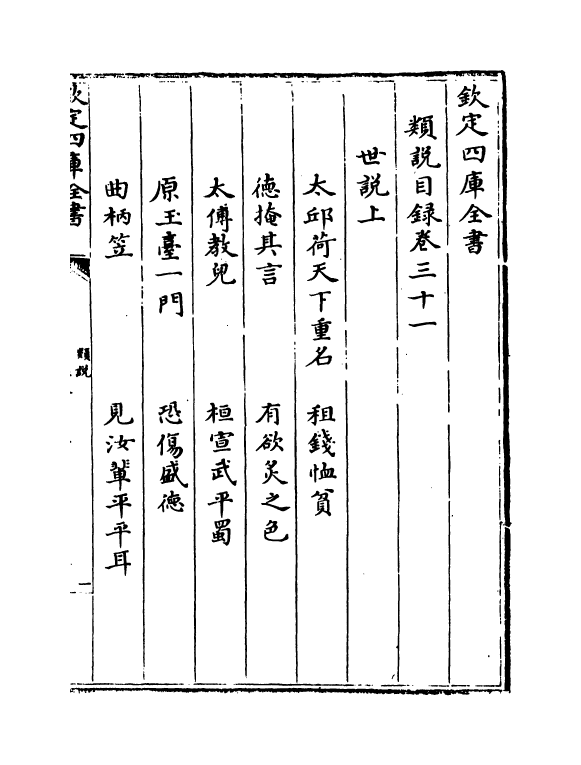 欽定四庫全書
類說目錄卷三十一
世說上
太邱荷天下重名 租錢恤貧
德掩其言 有欲炙之色
太傅教兒 桓宣武平蜀
原玉臺一門 恐傷盛德
曲柄笠 見汝輩平平耳
欽定四庫全書 類說 一